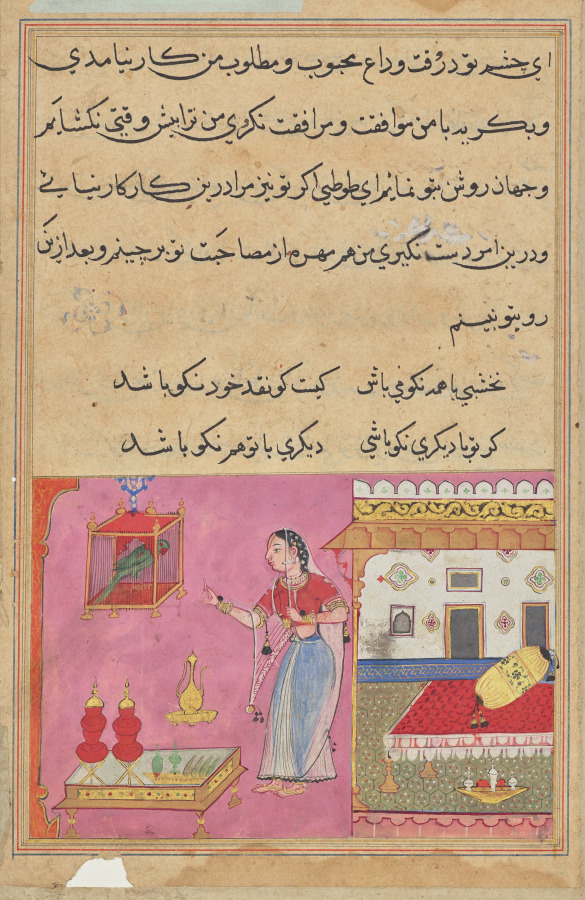 ای چشم تو در وقت وداع محبوب و مطلوب من کار نیامدی
و بکریه با من موافقت و مرافقت نکردی من ترا بیش وقتی نکشایم
و جهان روشن بتو نمایم ای طوطی اکر تو نیز مرا درین کار کار نیائی
و درین امر دست نگیری من هم مهره از مصاحبت تو برچینم و بعد ازین
رو بتو نبینم
نخشبی با همه نکو می باش کیست کو نقد خود نکو باشد
کر تو با دیکری نکو باشی دیکری با تو هم نکو باشد